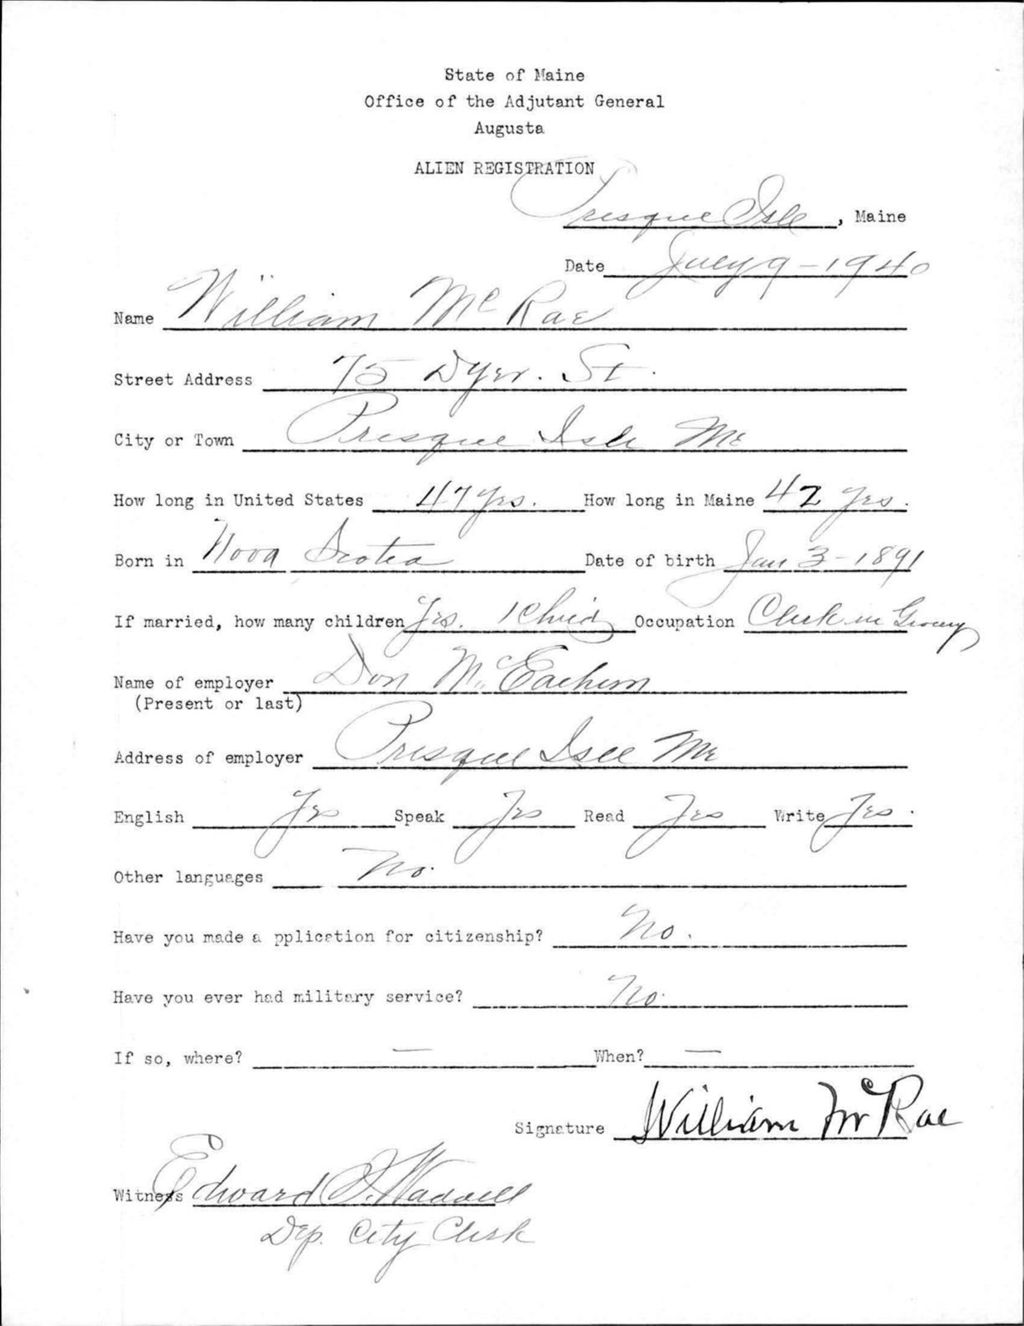 State of Maine
Office of the Adjutant General
Augusta
ALIEN REGISTRATION
Presque Isle, Maine
Date July 9-1940
Name William McRae
Street Address 75 Dyer. St.
City or Town Presque Isle Me
How long in United States 47 Yrs. How long in Maine 42 Yrs.
Born in Nova Scotia Date of birth Jan 3-1891
If married, how many children Yes. 1 Child Occupation Clerk in Grocery
Name of employer Don McEachern
(Present or last)
Address of employer Presque Isle Me
English Yes Speak Yes Read Yes Write Yes.
Other languages No.
Have you made a pplication for citizenship? No.
Have you ever had military service? No.
If so, where? — When? —
Signature William McRae
Witness Edward
Dep. City Clerk